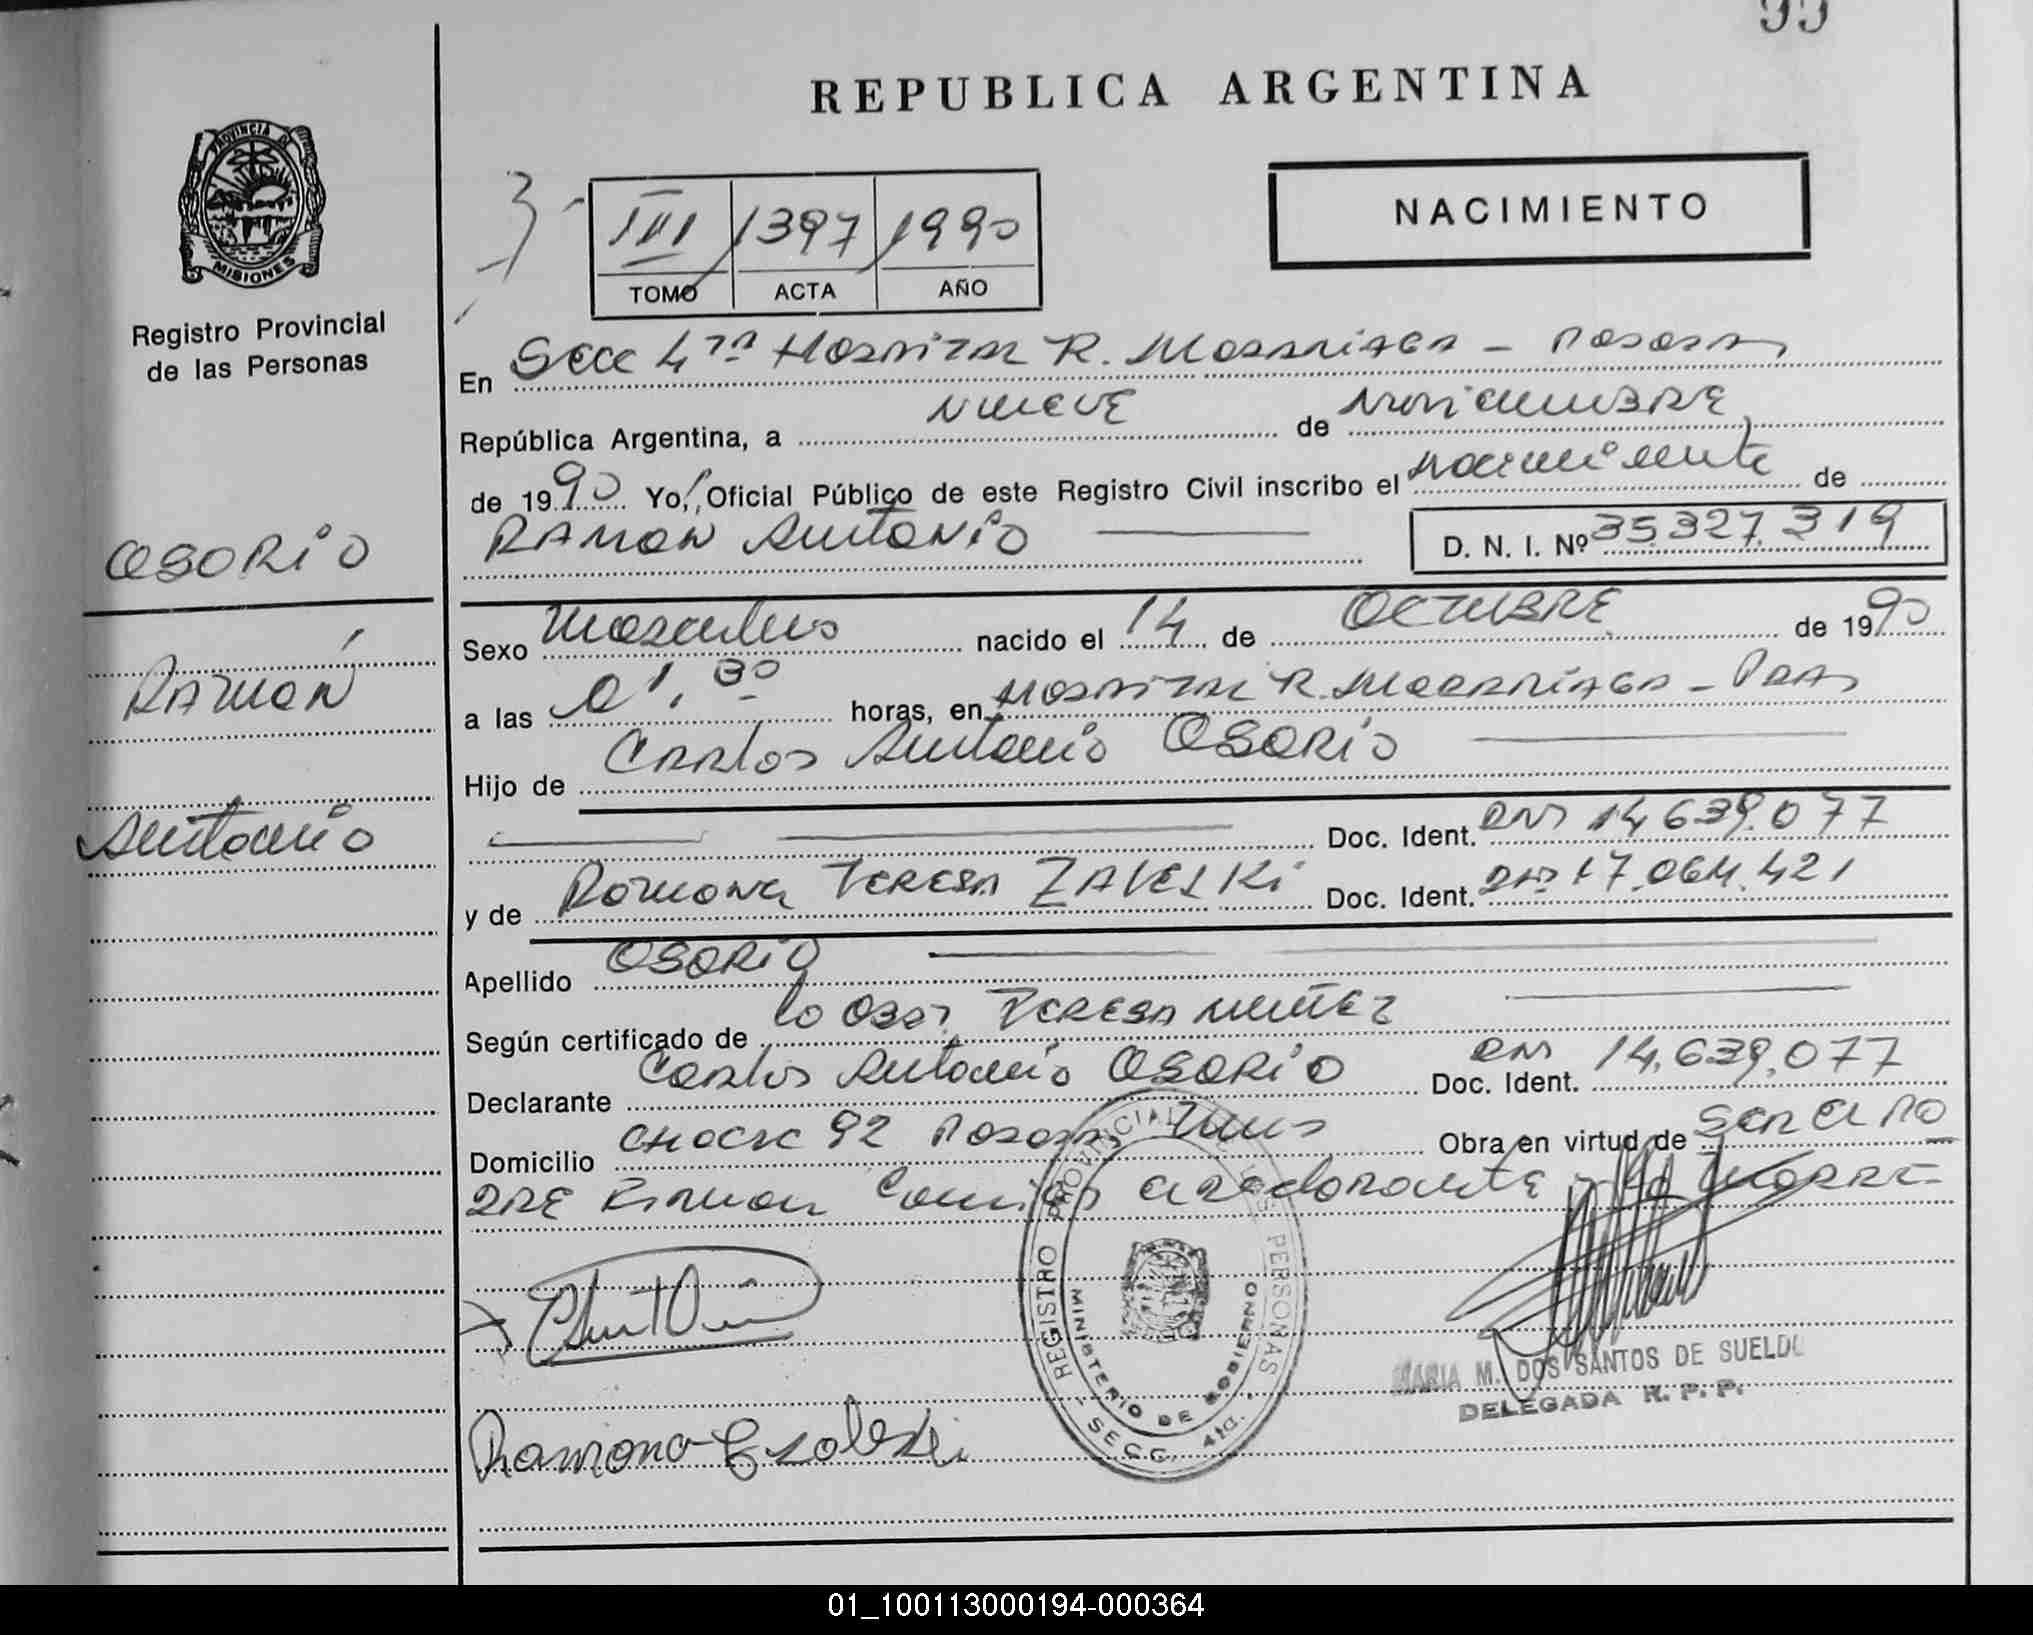 99
REPUBLICA ARGENTINA
PROVINCIA DE
MISIONES
Registro Provincial
de las Personas
3-
III 1397 1990
TOMO ACTA AÑO
NACIMIENTO
En Secc 4ta Hospital R. Madariaga - Posadas
República Argentina, a nueve de Noviembre
de 1990 Yo, Oficial Público de este Registro Civil inscribo el nacimiento de
RAMON Antonio D. N. I. Nº 35.327.319
OSORIO
Sexo Masculino nacido el 14 de OCTUBRE de 1990
RAMÓN
a las 01.30 horas, en Hospital R. Madariaga - Pdas
Hijo de Carlos Antonio OSORIO
Antonio
Doc. Ident. DNI 14.639.077
y de Ramona TERESA ZALESKI Doc. Ident. DNI 17.064.421
Apellido OSORIO
Según certificado de la Obst. TERESA NUÑEZ
Declarante Carlos Antonio OSORIO Doc. Ident. DNI 14.639.077
Domicilio CHACRA 92 Posadas Mnes Obra en virtud de SER EL PA
DRE Firman Conmigo el declarante y la MADRE-
REGISTRO PROVINCIAL DE LAS PERSONAS
MINISTERIO DE GOBIERNO
SECC. 4ta.
MARIA M. DOS SANTOS DE SUELDO
DELEGADA R. P. P.
Ramona T Zaleski
01_100113000194-000364